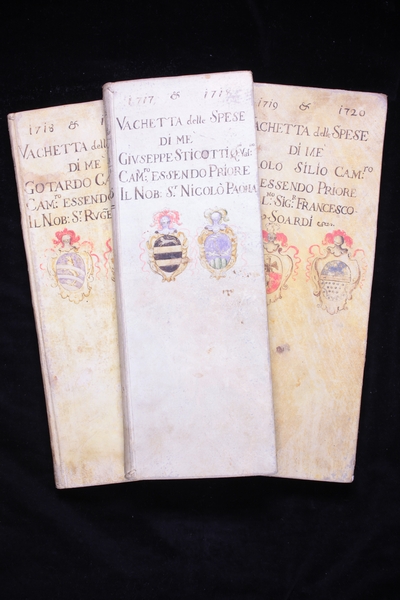 1718 &
VACHETTA del
DI ME
GOTARDO CA
CAM.ro ESSENDO
IL NOB: S.r RUGE
1717 & 171
VACHETTA delle SPESE
DI ME
GIUSEPPE STICOTTI
CAM.ro ESSENDO PRIORE
IL NOB: S.r NICOLÒ PAORLA
1719 & 1720
ACHETTA delle SPESE
DI ME
OLO SILIO CAM.ro
ESSENDO PRIORE
SIG.r FRANCESCO
SOARDI